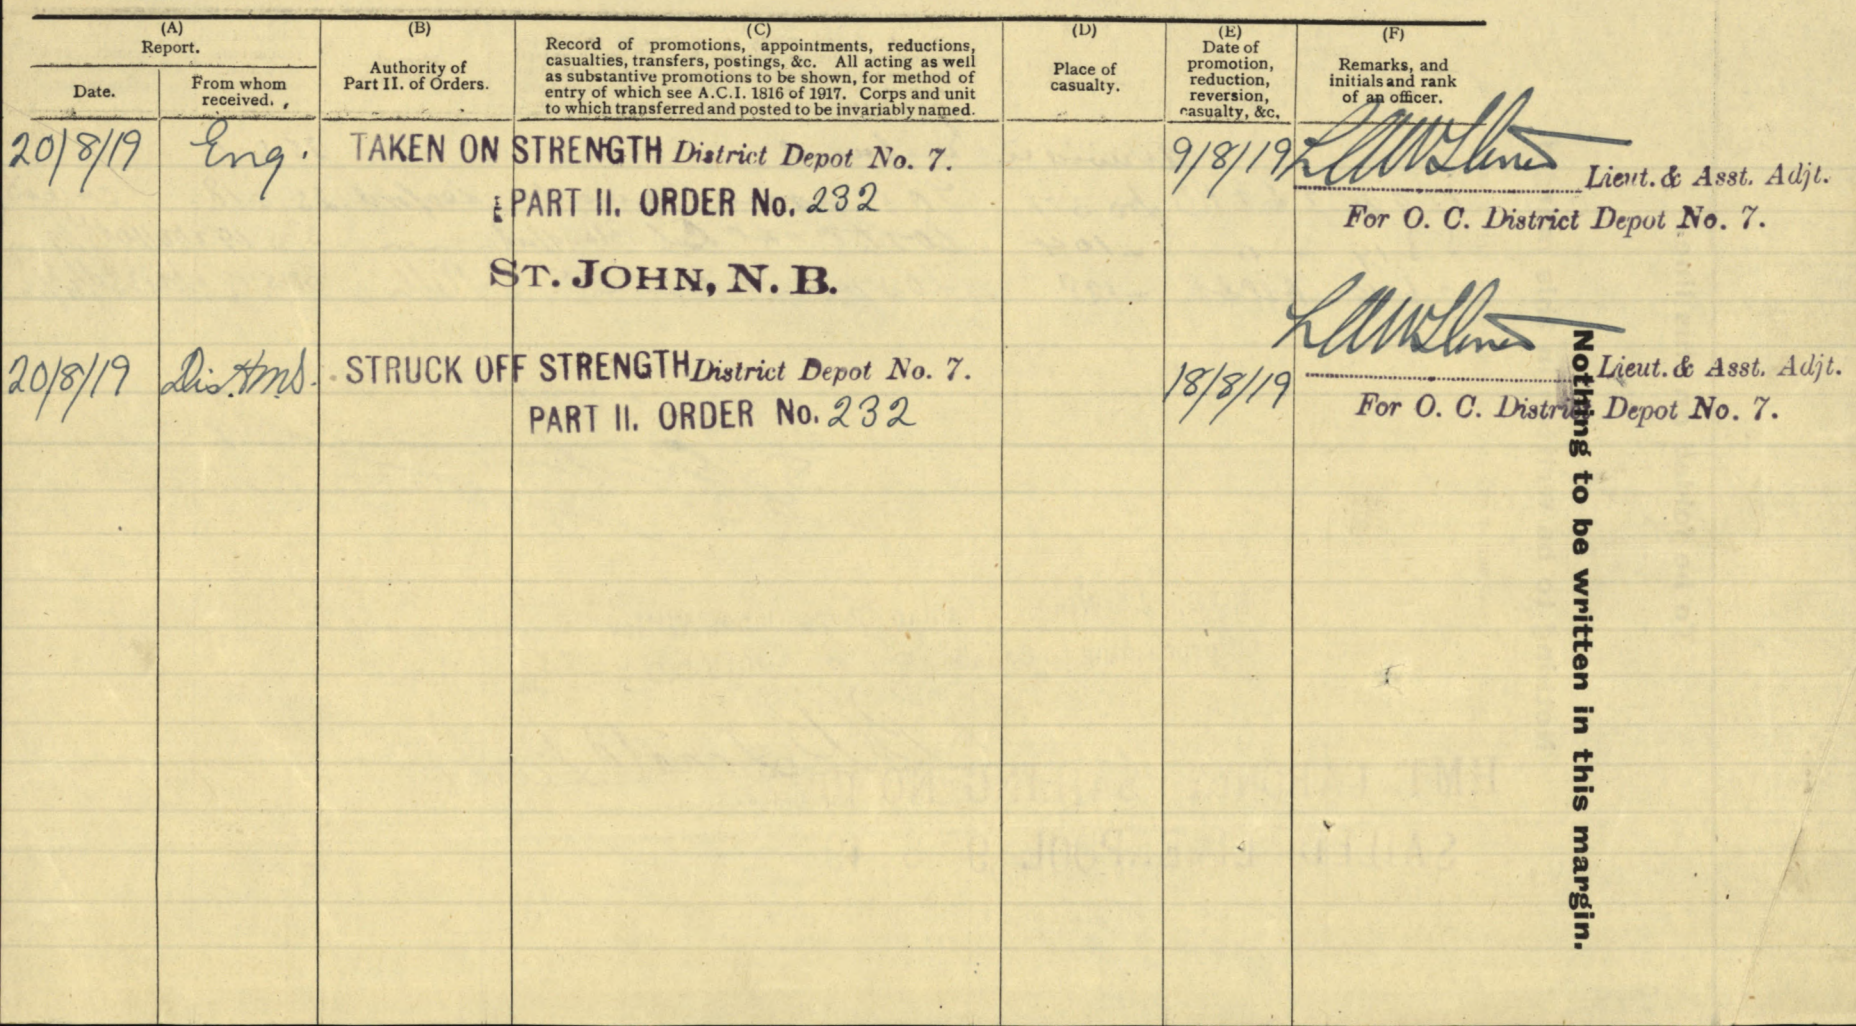 (A)
Report.
Date.
From whom
received.
(B)
Authority of
Part II. of Orders.
(C)
Record of promotions, appointments, reductions,
casualties, transfers, postings, &c. All acting as well
as substantive promotions to be shown, for method of
entry of which see A.C.I. 1816 of 1917. Corps and unit
to which transferred and posted to be invariably named.
(D)
Place of
casualty.
(E)
Date of
promotion,
reduction,
reversion,
casualty, &c.
(F)
Remarks, and
initials and rank
of an officer.
20/8/19 Eng. TAKEN ON STRENGTH District Depot No. 7. 9/8/19
Lieut. & Asst. Adjt.
PART II. ORDER No. 232
For O. C. District Depot No. 7.
ST. JOHN, N. B.
20/8/19 STRUCK OFF STRENGTH District Depot No. 7. 18/8/19
Lieut. & Asst. Adjt.
PART II. ORDER No. 232
For O. C. District Depot No. 7.
Nothing to be written in this margin.